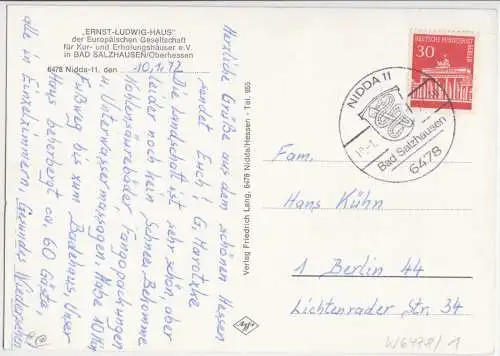 „ERNST-LUDWIG-HAUS"
der Europäischen Gesellschaft
für Kur- und Erholungshäuser e.V.
in BAD SALZHAUSEN/Oberhessen
6478 Nidda-11, den 10.1.72
Herzliche Grüße aus dem schönen Hessen
sendet Euch! G.
Die Landschaft ist sehr schön, aber
leider noch kein Schnee. Bekomme
Kohlensäurebäder, Fangopackungen
u. Unterwassermassagen. Habe 10 Min
Fußweg bis zum Badehaus. Unser
Haus beherbergt ca. 60 Gäste,
alle in Einzelzimmern. Gesundes Wiedersehen
Verlag Friedrich Lang, 6478 Nidda/Hessen - Tel. 655
DEUTSCHE BUNDESPOST
BERLIN
30
NIDDA 11
Bad Salzhausen
6478
Fam.
Hans Kühn
1 Berlin 44
Lichtenrader Str. 34
Agfa
W6478/1